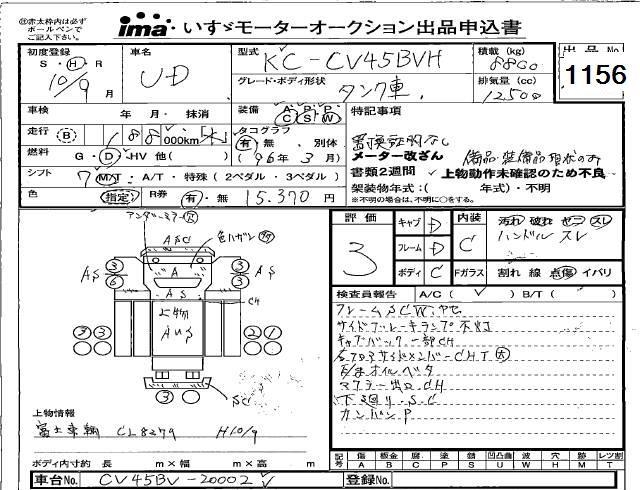 ※赤太枠内は必ず
ボールペンで
ご記入下さい。
ima いすゞモーターオークション出品申込書
初度登録
S・H・R
10/9月
車名
UD
型式
KC-CV45BVH
グレード・ボディ形状
タンク車
積載(kg)
8800
排気量(cc)
12500
出品No
1156
車検
年 月・抹消
装備
A/C P/S P/W
走行
B
188,000km
タコグラフ
有・無 別体
(96年3月)
燃料
G・D・HV 他( )
シフト
7 M/T・A/T・特殊(2ペダル・3ペダル)
色
(指定)
R券
有・無 15.370円
特記事項
置換証明なし
メーター改ざん
備品・装備品現状のみ
書類2週間 上物動作未確認のため不良
架装物年式:( 年式)・不明
※不明の場合は、不明に○をする。
アンダーミラー
色ハガシ
ASC
AS
A
AS
AS
CH
上物
AUS
SC
3 6 3 3
3 3 2 1
3
評価
3
キャブ D
フレーム D
ボディ C
内装
C
Fガラス
汚れ 破れ ゼニ スレ
ハンドル スレ
割れ 線 点傷 イバリ
検査員報告
A/C( ✓ ) B/T( )
フレームSCW、サビ
サイドブレーキランプ不灯
キャブバック一部CH
右フロアサイドメンバーCHT大
マフラー出口CH
下回り・S・C
カンバンP
上物情報
富士車輌 CL8279 H10/9
ボディ内寸約 長 m×幅 m×高 m
記号
傷 板金 腐 塗 錆 凹凸曲 波 穴 跡 レツ割
A B C P S U W H M T
車台No.
CV45BV-20002
登録No.